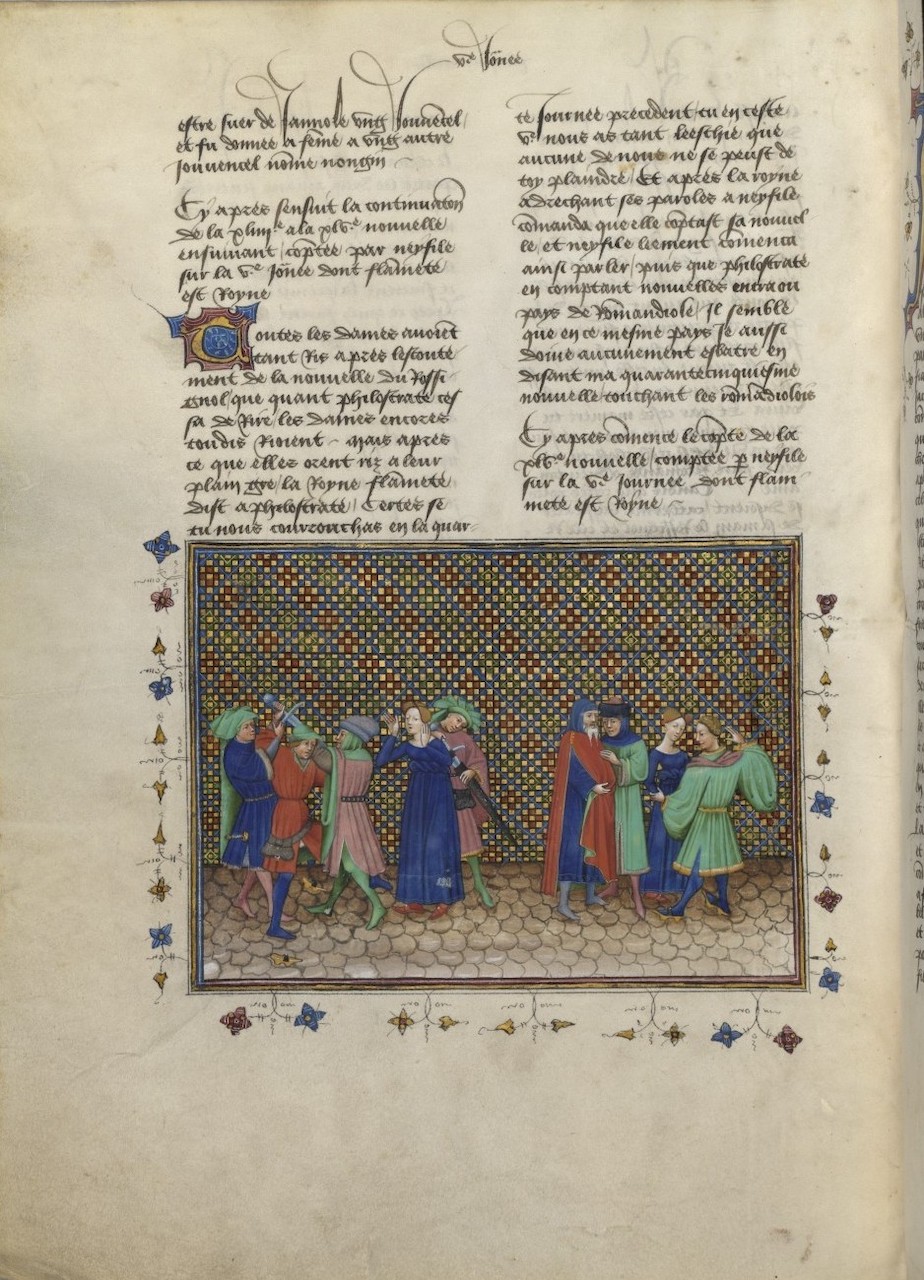 vᵉ Jōnee
estre suer de Jannole vng Jouuencel
et fu donnee a fēme a vng autre
Jouuencel nōme nongin
Cy apres sensuit la continuatōn
de la xliiiiᵉ a la xlvᵉ nouuelle
ensuiuant / cōptee par neyfile
sur la vᵉ Jōnee dont flāmete
est Royne
Toutes les dames auoiēt
tant Ris apres lescoute
ment de la nouuelle du Rossi
gnol / que quant philostrate ces
sa de Rire / les dames encores
toudis Rioient ~ Mais apres
ce que elles orent riz a leur
plain gre / la Royne flamete
dist a philostrate / Certes se
tu nous courrouchas en la quar-
te Journee precedent / tu en ceste
vᵉ nous as tant leeschie que
aucune de nous ne se peust de
toy plaindre / Et apres la royne
adrechant ses paroles a neyfile
cōmanda que elle cōptast sa nouuel
le / et neyfile liement cōmenca
ainsi parler / puis que philostrate
en comptant nouuelles entra ou
pays de Rōmandiole / Il semble
que en ce mesme pays Je aussi
doiue aucunement esbatre en
disant ma quarantecinquiesme
nouuelle touchant les romādiolois
Cy apres cōmence le cōpte de la
xlvᵉ nouuelle / comptee p̄ neyfile
sur la vᵉ Journee dont flam
mete est Royne